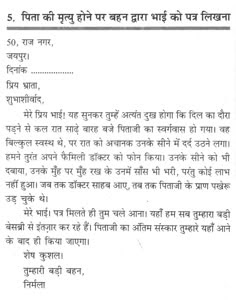 5. पिता की मृत्यु होने पर बहन द्वारा भाई को पत्र लिखना
50, राज नगर,
जयपुर।
दिनांक ............
प्रिय भ्राता,
शुभाशीर्वाद,
मेरे प्रिय भाई! यह सुनकर तुम्हें अत्यंत दुख होगा कि दिल का दौरा
पड़ने से कल रात साढ़े बारह बजे पिताजी का स्वर्गवास हो गया। वह
बिल्कुल स्वस्थ थे, पर रात को अचानक उनके सीने में दर्द उठने लगा।
हमने तुरंत अपने फैमिली डॉक्टर को फोन किया। उनके सीने को भी
दबाया, उनके मुँह पर मुँह रख के उनमें साँस भी भरी, परंतु कोई लाभ
नहीं हुआ। जब तक डॉक्टर साहब आए, तब तक पिताजी के प्राण पखेरू
उड़ चुके थे।
मेरे भाई! पत्र मिलते ही तुम चले आना। यहाँ हम सब तुम्हारा बड़ी
बेसब्री से इंतज़ार कर रहे हैं। पिताजी का अंतिम संस्कार तुम्हारे यहाँ आने
के बाद ही किया जाएगा।
शेष कुशल।
तुम्हारी बड़ी बहन,
निर्मला